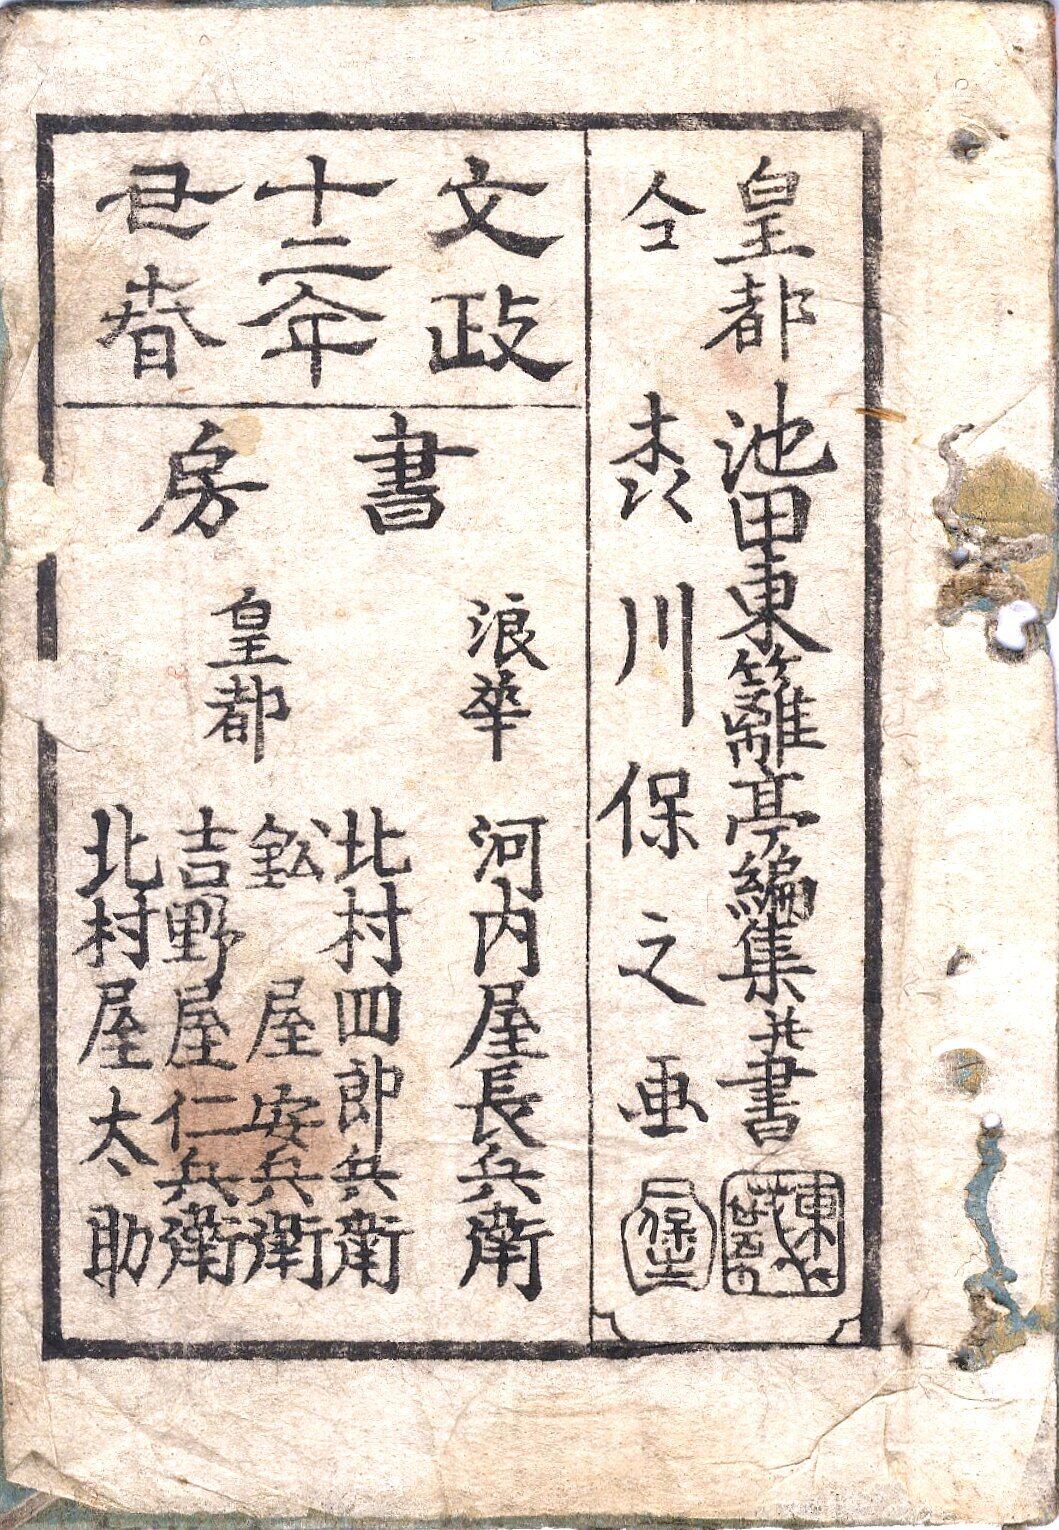 皇都 池田東籬亭編集并書
仝 森川保之画
文政
十二年
丑春
書房
浪華 河内屋長兵衛
皇都 北村四郎兵衛
鈆屋安兵衛
吉野屋仁兵衛
北村屋太助